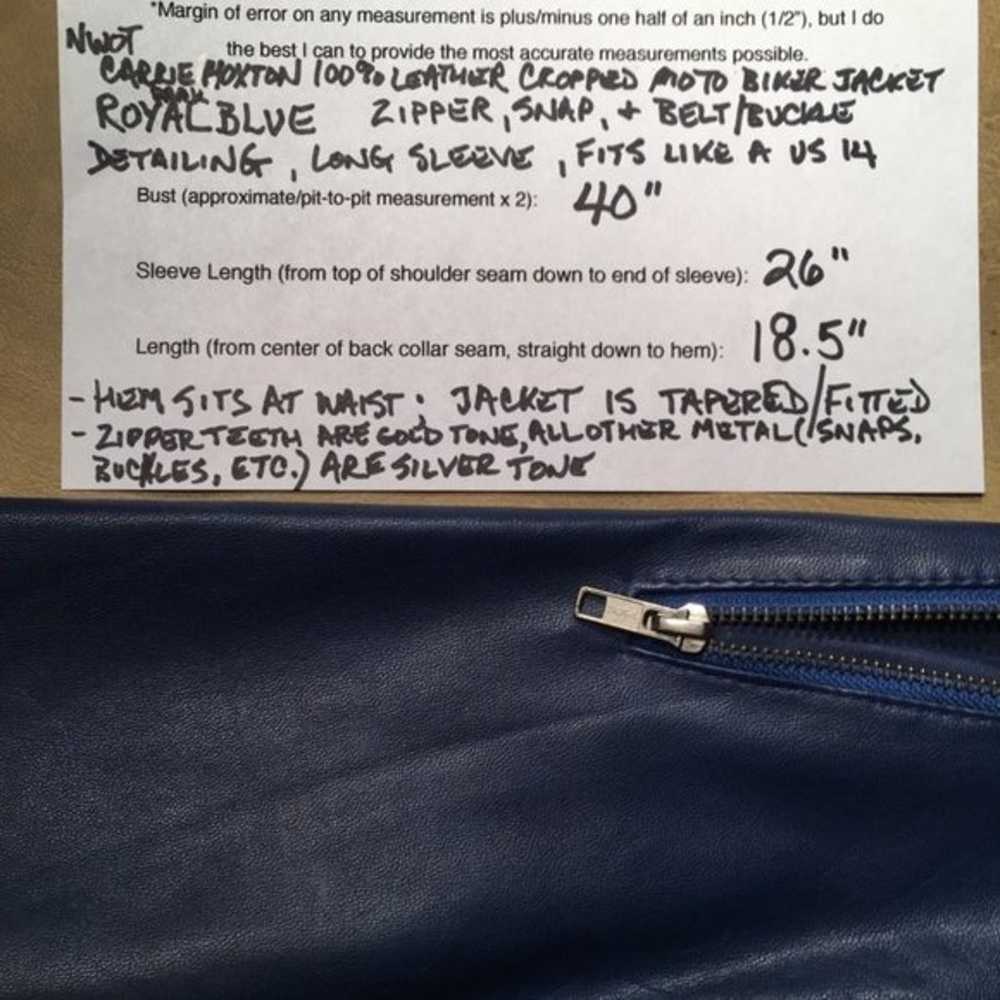 *Margin of error on any measurement is plus/minus one half of an inch (1/2"), but I do
NWOT the best I can to provide the most accurate measurements possible.
CARRIE HOXTON 100% LEATHER CROPPED MOTO BIKER JACKET
ROYAL BLUE ZIPPER, SNAP, + BELT/BUCKLE
DETAILING, LONG SLEEVE, FITS LIKE A US 14
Bust (approximate/pit-to-pit measurement x 2): 40"
Sleeve Length (from top of shoulder seam down to end of sleeve): 26"
Length (from center of back collar seam, straight down to hem): 18.5"
- HEM SITS AT WAIST; JACKET IS TAPERED/FITTED
- ZIPPER TEETH ARE GOLD TONE, ALL OTHER METAL (SNAPS,
BUCKLES, ETC.) ARE SILVER TONE